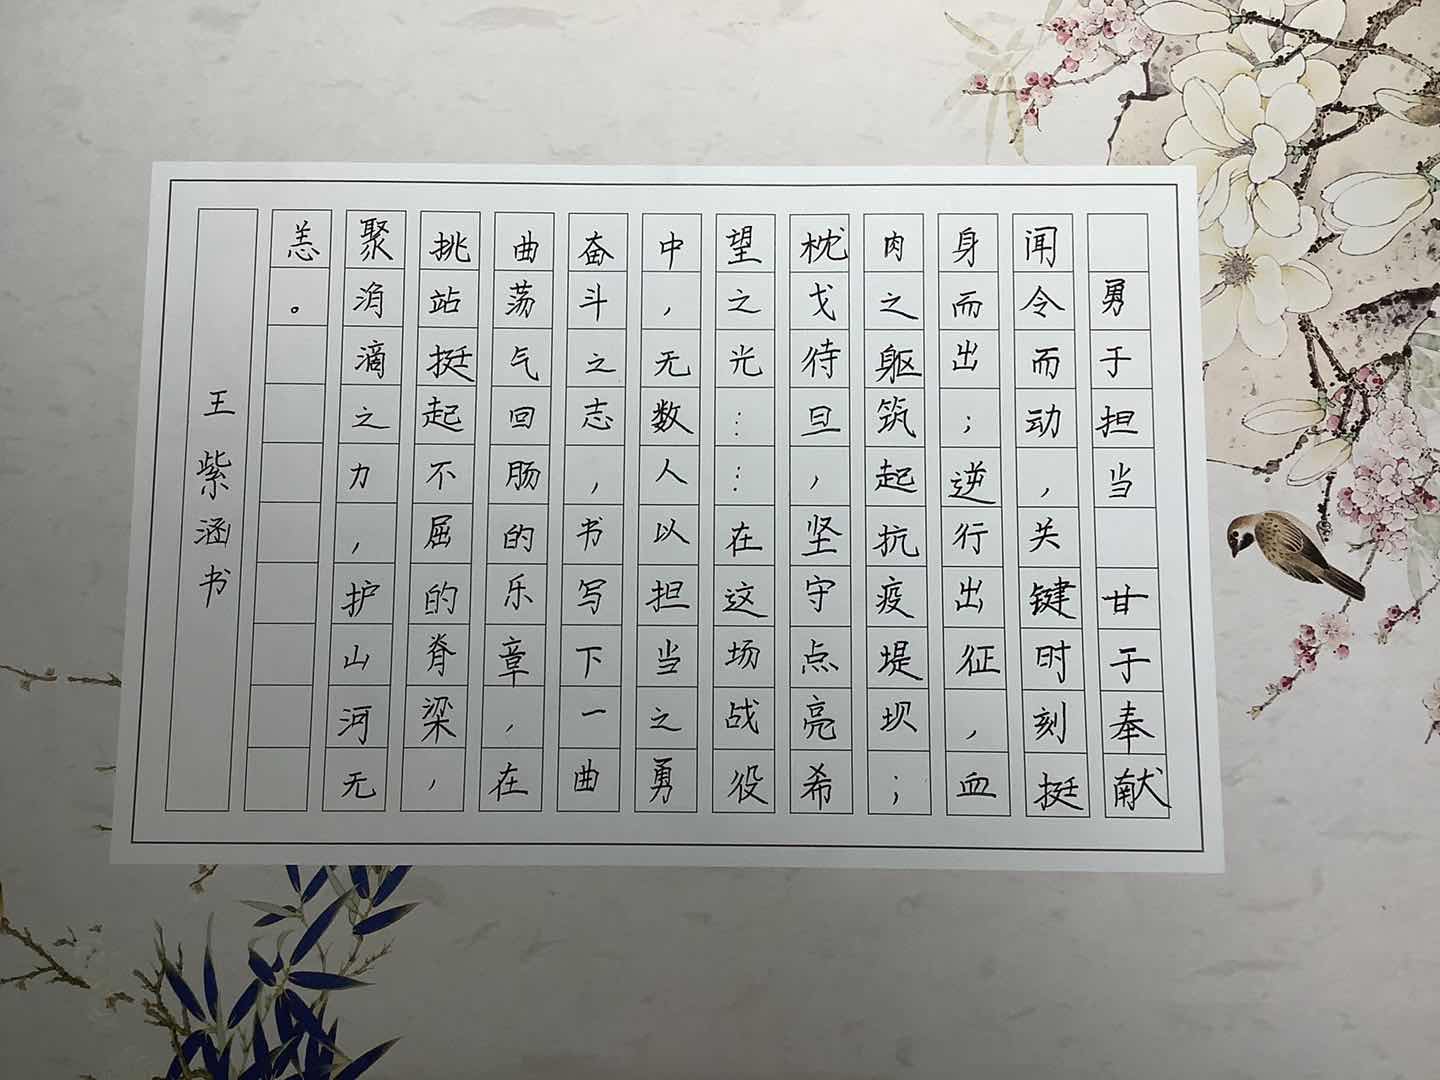 勇于担当 甘于奉献
闻令而动，关键时刻挺
身而出；逆行出征，血
肉之躯筑起抗疫堤坝；
枕戈待旦，坚守点亮希
望之光……在这场战役
中，无数人以担当之勇
奋斗之志，书写下一曲
曲荡气回肠的乐章，在
挑站挺起不屈的脊梁，
聚涓滴之力，护山河无
恙。
王紫涵书